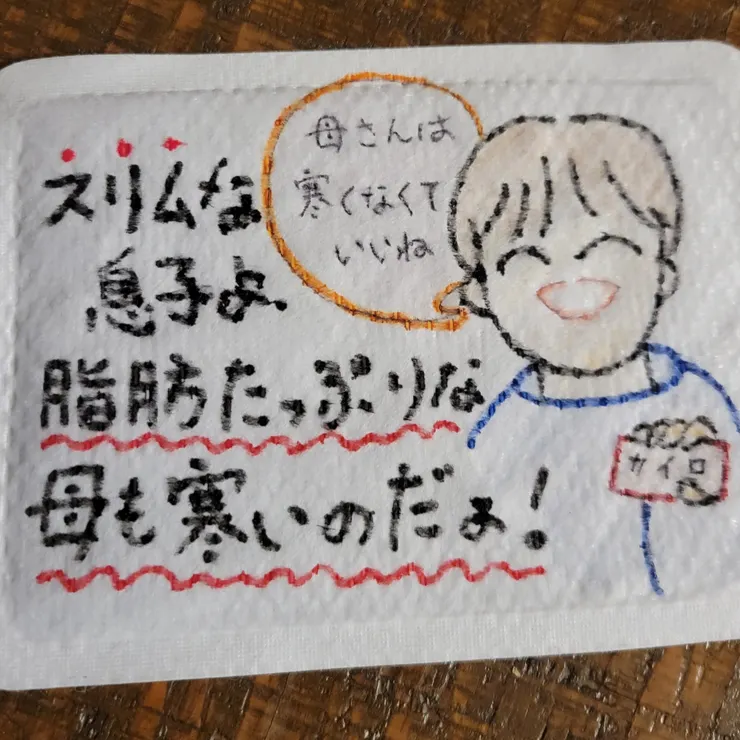 スリムな
息子よ
脂肪たっぷりな
母も寒いのだよ!
母さんは
寒くなくて
いいね
カイロ